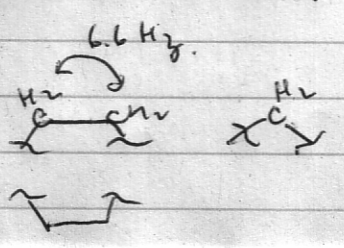 6.6 Hz.
H2
C CH2
H2
C
X Y